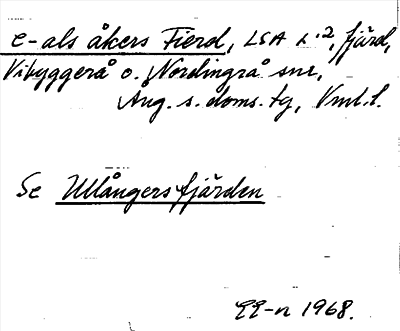 e-als åkers Fierd, LSA L.2, fjärd,
Vibyggerå o. Nordingrå snr,
Ång. s. doms. tg, Vnl.l.
Se Ullångersfjärden
EE-n 1968.